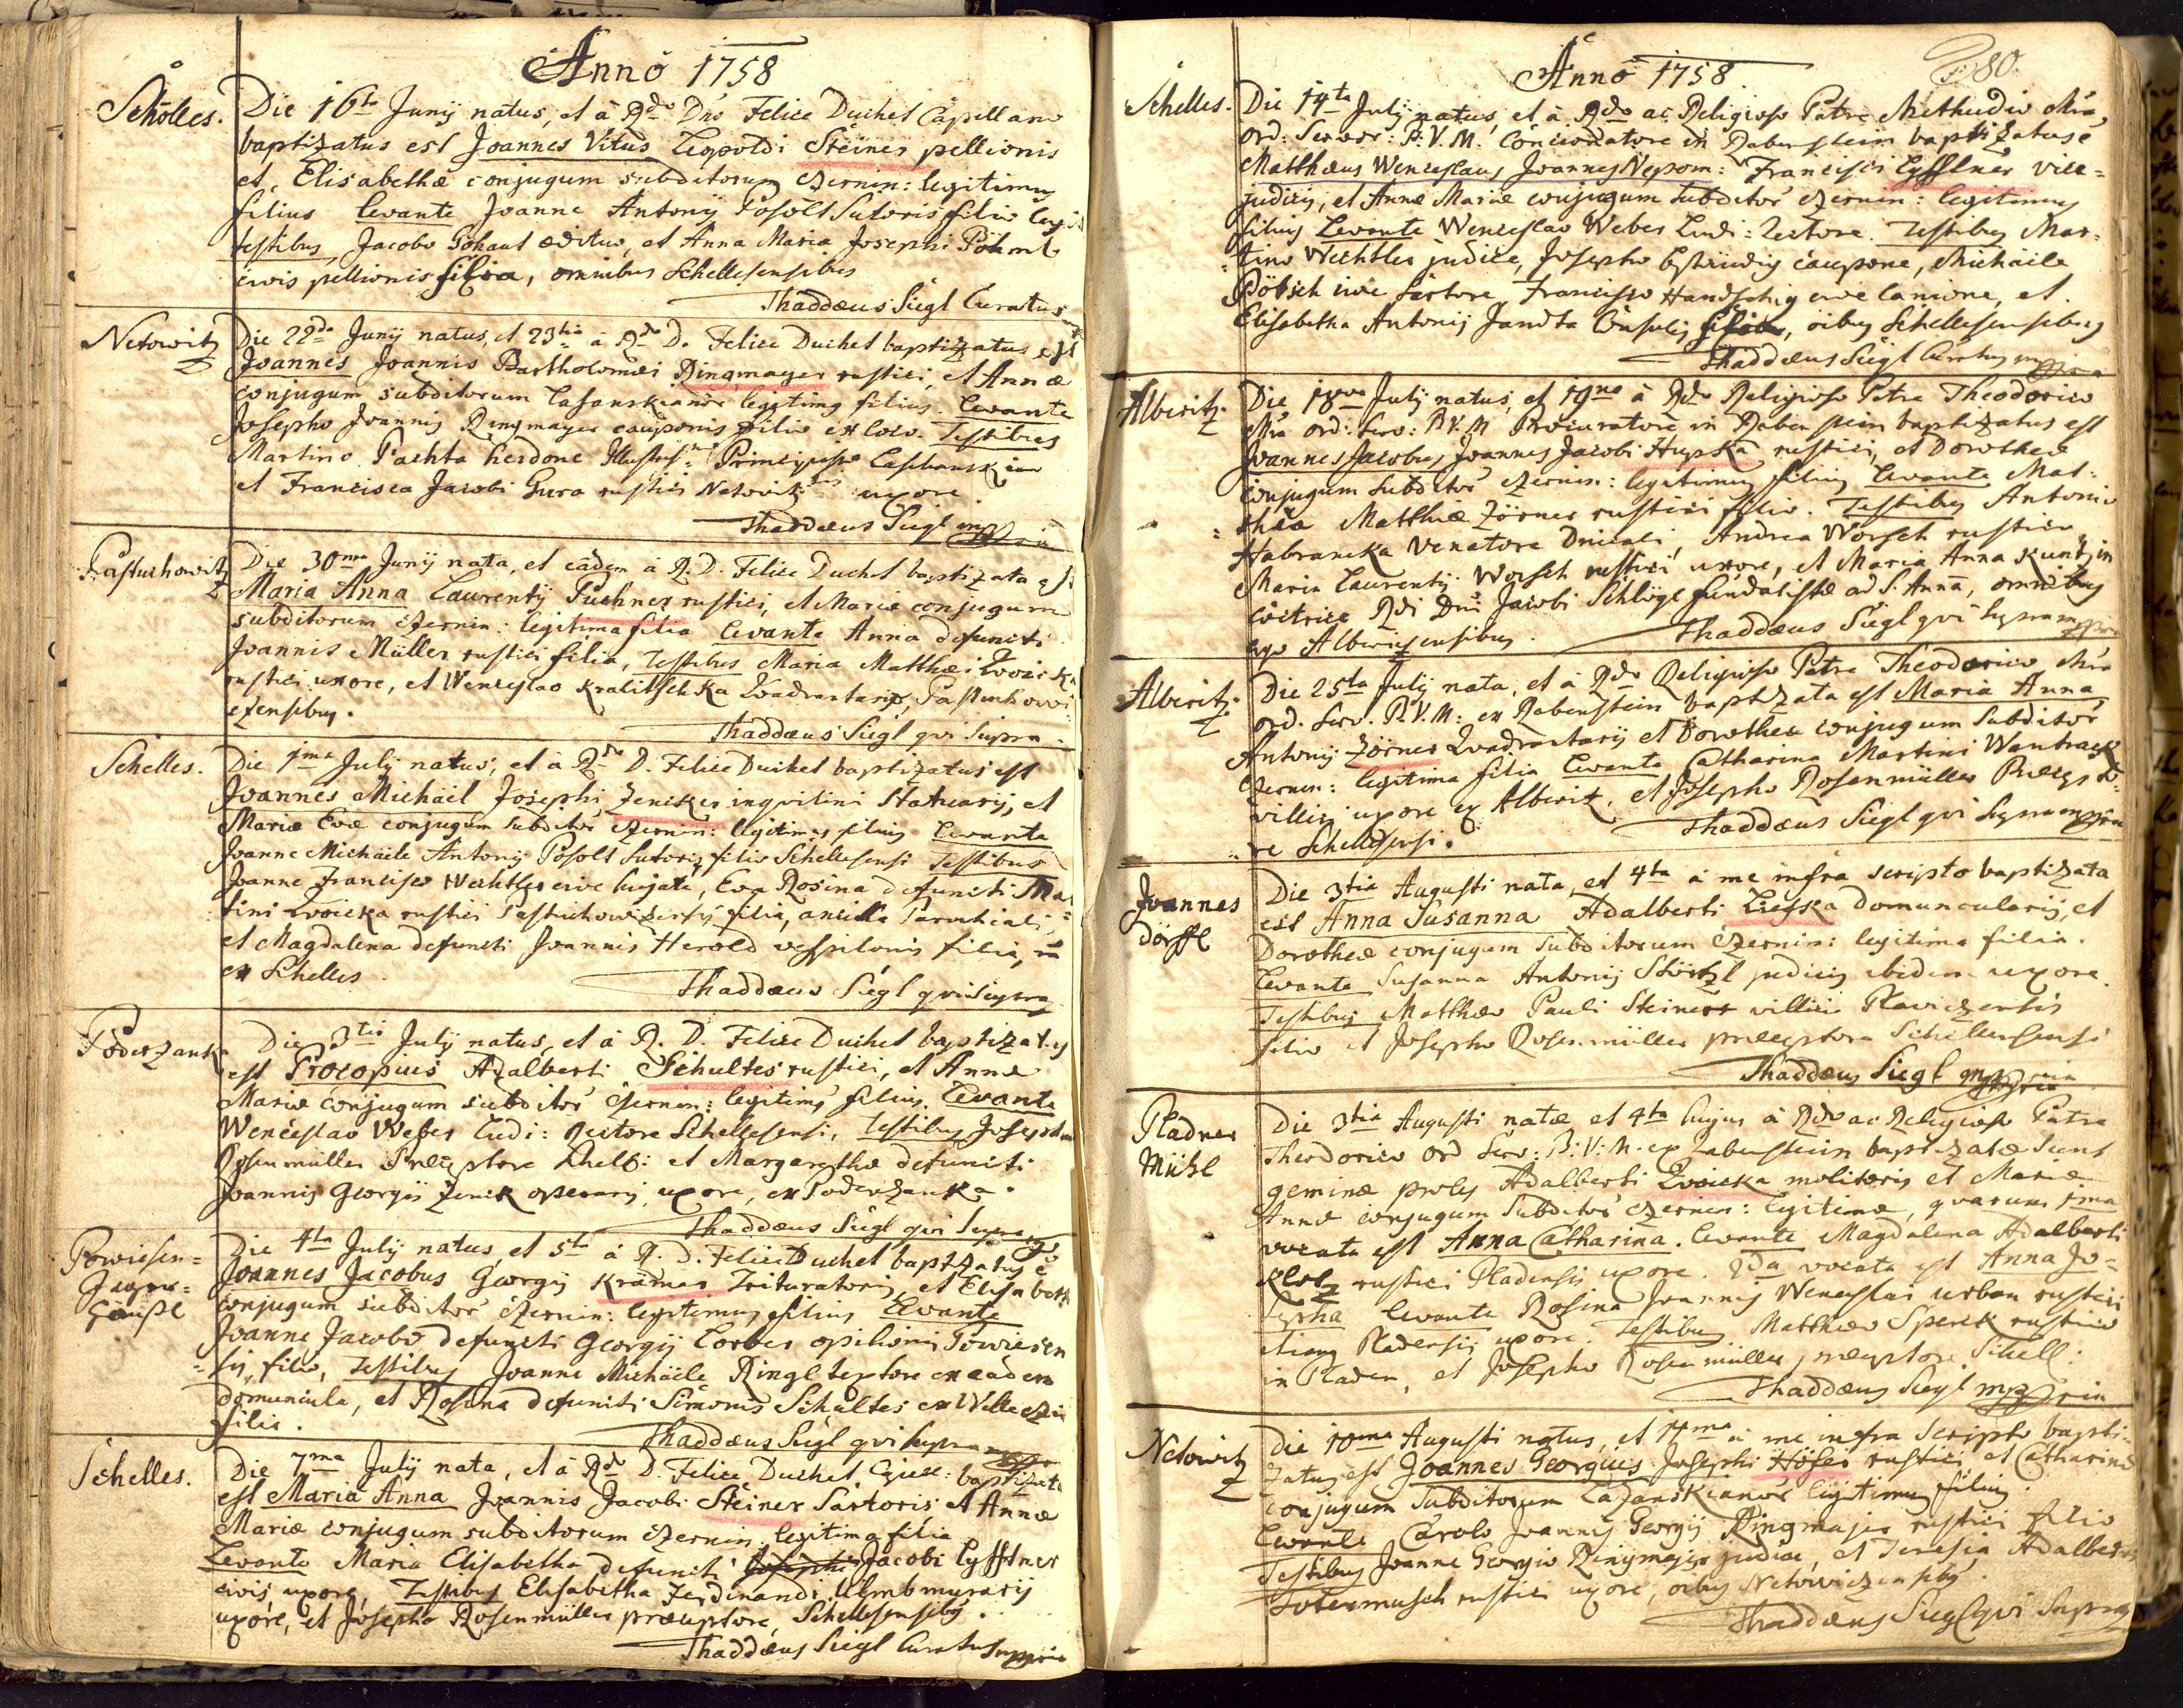 Anno 1758
Schölles. Die 16ta Junij natus, et à Rdo Dno Felice Duchet Capellano
baptizatus est Joannes Vitus Leopoldi Steiner pellionis
et Elisabethæ conjugum subditorum Czernin: legitimus
filius levante Joanne Antonij Posölt Sutoris filio
testibus, Jacobo ædituo, et Anna Maria Josephi Pöhml
civis pellionis filia, omnibus Schellesensibus
Thaddæus Siegl Curatus
Netowitz Die 22da Junij natus, et 23tia a Rdo D. Felice Duchet baptizatus est
Joannes Joannis Bartholomæi Ringmayer rustici, et Annæ
conjugum subditorum Lasanskianor legitimg filius. Levante
Josepho Joannis Ringmayer cauponis filio ex loco. Testibus
Martino Pachta herdone Principissæ
et Francisca Jacobi Gura rustici uxore.
Thaddæus Siegl mppria
Pastuchowitz Die 30ma Junij nata, et eâdem à R. D. Felice Duchet baptizata est
Maria Anna Laurentij Puchner rustici, et Mariæ conjugum
subditorum Czernin: legitima filia levante Anna defuncti
Joannis Müller rustici filia, Testibus Maria Matthæi
rustici uxore, et Wenceslao Kralitschka Quadrantario, Pastuchowi
czensibus.
Thaddæus Siegl qvi Supra
Schelles. Die 1ma Julij natus, et à Rdo D. Felice Duchet baptizatus est
Joannes Michäel Josephi Zencker inquilini Statuarij, et
Mariæ Evæ conjugum subditor Czernin: legitimus filius Levante
Joanne Michäele Antonij Posolt Sutoris filio Schellesensi Testibus
Joanne Francisco Wächtler cive hujate, Eva Rosina defuncti Mar
tini rustici Pastuchowizensis filia, ancilla Parochiali,
et Magdalena defuncti Joannis Herold vespilonis filia,
ex Schelles
Thaddæus Siegl qvi Supra
Poderzanka Die 3tia Julij natus, et à R. D. Felice Duchet baptizatus
est Procopius Adalberti Schultes rustici, et Annæ
Mariæ conjugum subditor Czernin: legitimus filius. Levante
Wenceslao Weber Ludi: Rectore Schellesensi, Testibus Josepho
Rosenmüller Præceptore et Margaretha defuncti
Joannis Georgij Zenck operarij uxore, ex Poderzanka.
Thaddæus Siegl qvi Supra
Powiesen=
Jäger=
häußl Die 4ta Julij natus, et 5ta à R. D. Felice Duchet baptizatus ē
Joannes Jacobus Georgij Krämer Trituratoris, et Elisabeth
conjugum subditor Czernin: legitimus filius Levante
Joanne Jacobo defuncti Georgij Corber opilionis Powiesen
sis filio, Testibus Joanne Michäele Ringl textore ex eadem
domuncula, et Rosina defuncti Simonis Schultes ex
filia.
Thaddæus Siegl qvi Supra
Schelles. Die 7ma Julij nata, et à Rdo D. Felice Duchet Capell: baptizata
est Maria Anna Joannis Jacobi Steiner Sartoris, et Annæ
Mariæ conjugum subditorum Czernin. legitima filia
Levante Maria Elisabetha defuncti Jacobi Lyfftner
civis uxore, Testibus Elisabetha Ferdinandi murarij
uxore, et Josepho Rosenmüller præceptore, Schellesensibus.
Thaddæus Siegl Curatus mppria
Anno 1758.
80.
Schelles. Die 14ta Julij natus, et à Rdo ac Religioso Patre Methudio
Ord: Servor: B. V. M. Concionatore in Rabenstein baptizatus ē
Matthæus Wenceslaus Joannes Nepom: Francisci Lyfftner vice=
judicis, et Annæ Mariæ conjugum subditor Czernin: legitimus
filius Levante Wenceslao Weber Ludi: rectore. Testibus Mar=
tino Wächtler judice, Josepho caupone, Michäele
Pötsch cive Sartore, Francisco Handschig cive lanione, et
Elisabetha Antonij Jandta Consulis, oibus Schellesensibus
Thaddæus Siegl Curatus mppria
Alberitz. Die 18va Julij natus, et 19na à Rdo Religioso Patre Theodorico
ord: Serv: B. V. M Procuratore in Rabenstein baptizatus est
Joannes Jacobus Joannis Jacobi Hupka rustici, et Dorotheæ
conjugum subditor Czernin: legitimus filius levante Mat=
thæo Matthiæ Zörner rustici filio. Testibus Antonio
Habrancka Venatore Dnicali, Andrea Worsch rustico
Maria Laurentij Worsch rustici uxore, et Maria Anna Kuntzin
coctrice Rdi Dni Jacobi Schlögl fundatistæ ad S. Annā, omnibus
Thaddæus Siegl qvi Supra mppria
Alberitz. Die 25ta Julij nata, et à Rdo Religioso Patre Theodorico
ord. Serv. B. V. M: ex Rabenstein baptizata est Maria Anna
Antonij Zörner Quadrantarij et Dorotheæ conjugum subditor
Czernin: legitima filia levante Catharina Martini
villici uxore ex Alberitz, et Josepho Rosenmüller Præcepto=
re Schellesensi.
Thaddæus Siegl qvi Supra mppria
Joannes
dörffl Die 3tia Augusti nata, et 4ta à me infra scripto baptizata
est Anna Susanna Adalberti domuncularij, et
Dorotheæ conjugum subditorum Czernin: legitima filia.
Levante Susanna Antonij judicis ibidem uxore.
Testibus Matthæo Pauli Steiner villici
filio et Josepho Rosenmüller præceptore Schellesensi
Thaddæus Siegl mppria
Pladner
Mühl Die 3tia Augusti natæ et 4ta hujus à Rdo ac Religioso Patre
Theodorico Ord Serv: B: V: M. ex Rabenstein baptizatæ sunt
geminæ proles Adalberti molitoris et Mariæ
Annæ conjugum subditor Czernin: legitimæ, quarum 1ma
vocata est Anna Catharina. Levante Magdalena Adalberti
Klotz rustici Pladensis uxore. 2da vocata est Anna Jo=
sepha levante Rosina Joannis Wenceslai urban rustici
etiam Pladensis uxore. Testibus Matthæo Sperck rustico
in Pladen, et Josepho Rosenmüller præceptore Schell:
Thaddæus Siegl mppria
Netowitz Die 10ma Augusti natus, et 11ma à me infra scripto bapti=
zatus est Joannes Georgius Josephi Höfer rustici et Catharinæ
conjugum subditorum Lazanskianor legitimus filius
Levante Carolo Joannis Georgij Ringmajer rustici filio
Testibus Joanne Georgio Ringmajer judice, et Teresia Adalberti
rustici uxore, oibus Netowiczensibus.
Thaddæus Siegl qvi Supra